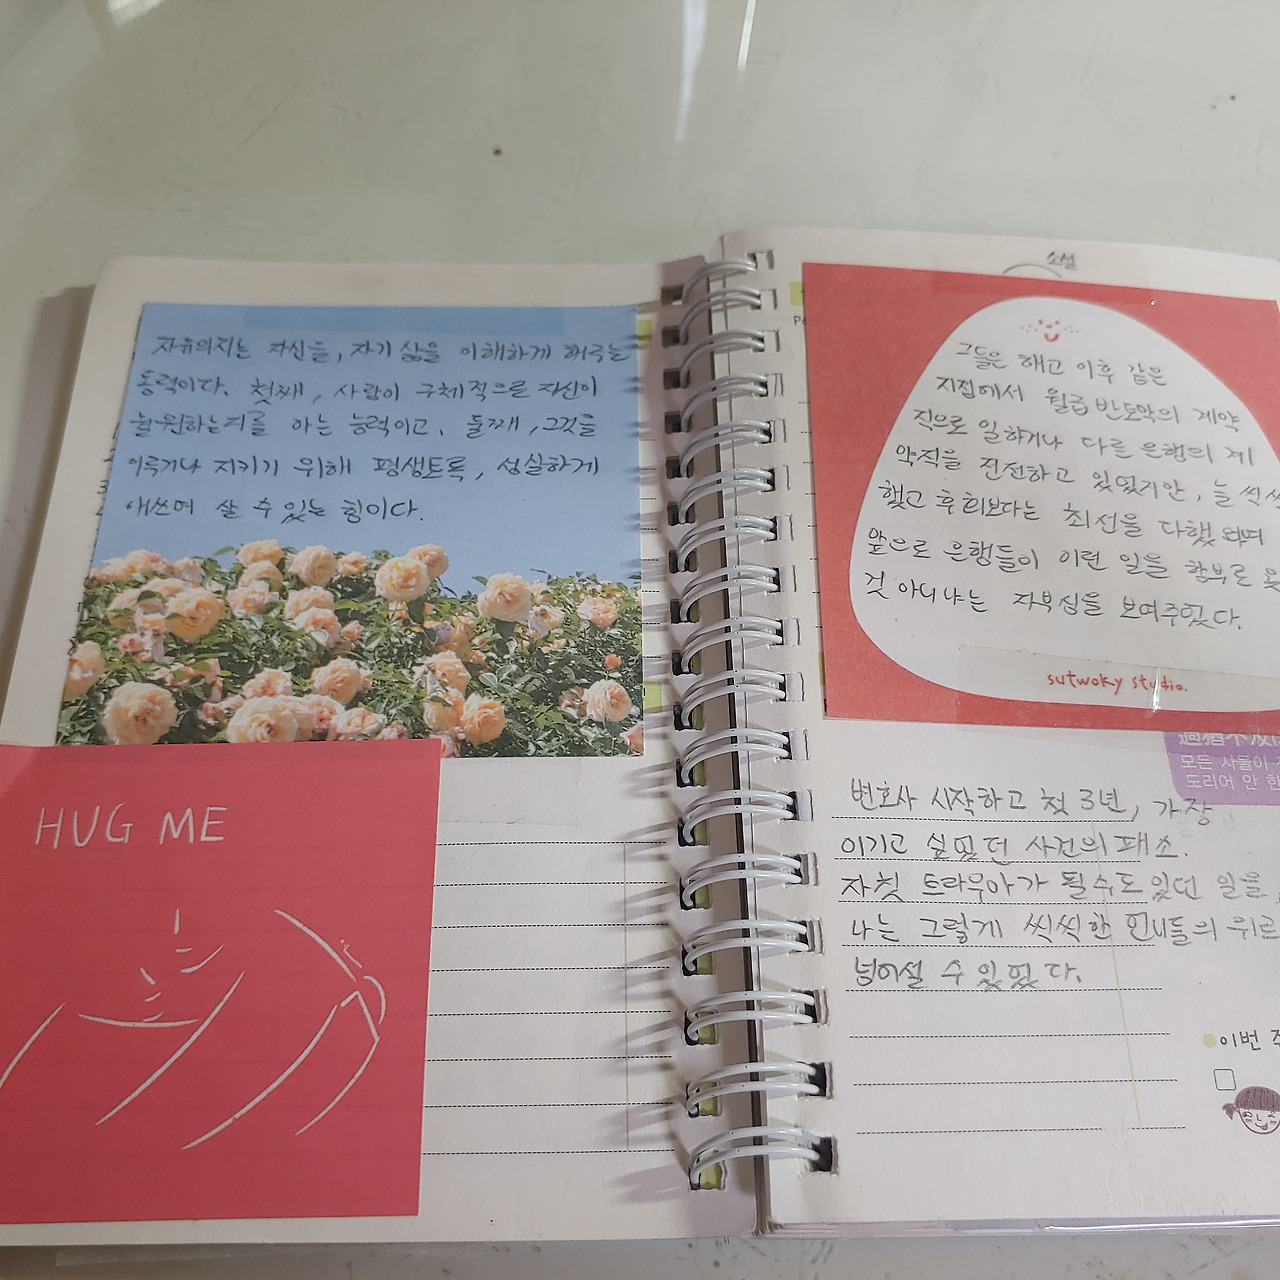 자유의지는 자신들, 자기 삶을 이해하게 해주는
동력이다. 첫째, 사람이 구체적으로 자신이
뭘 원하는지를 아는 능력이고, 둘째, 그것을
이루거나 지키기 위해 평생토록, 성실하게
애쓰며 살 수 있는 힘이다.
HUG ME
소설
그들은 해고 이후 같은
지점에서 월급 반토막의 계약
직으로 일하거나 다른 은행의 계
약직을 전전하고 있었지만, 늘 씩씩
했고 후회보다는 최선을 다했으며
앞으로 은행들이 이런 일을 함부로 못
것 아니냐는 자부심을 보여주었다.
sutwoky studio.
모든 사물이
도리어 안 한
변호사 시작하고 첫 3년, 가장
이기고 싶었던 사건의 패소.
자칫 트라우마가 될 수도 있던 일을,
나는 그렇게 씩씩한 언니들의 위로
넘어설 수 있었다.
이번